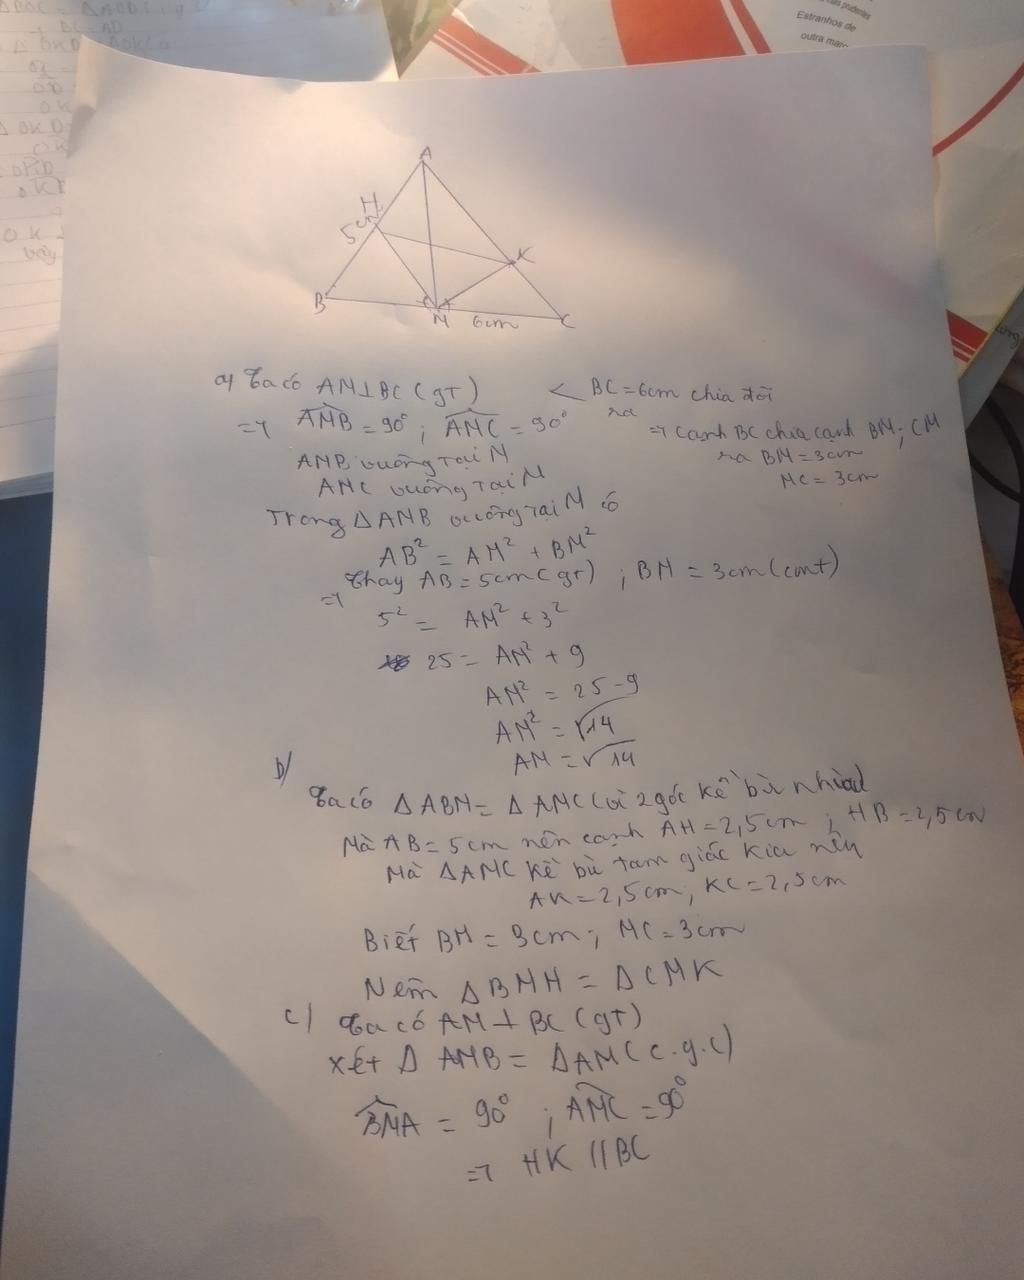 Estranhos de
outra marc
A
H
5cm
K
B
M
6cm
C
a) Ta có AM⊥BC (gT)
=> AMB = 90°; AMC = 90°
< BC = 6cm chia đôi
ra
=> cạnh BC chia cạnh BM; CM
ra BM = 3cm
MC = 3cm
AMB vuông Tại M
AMC vuông Tại M
Trong △AMB vuông Tại M có
AB² = AM² + BM²
=> Thay AB = 5cm (gT) ; BM = 3cm (cmt)
5² = AM² + 3²
25 = AM² + 9
AM² = 25 - 9
AM² = √14
AM = √14
b/
Ta có △ABM = △AMC (vì 2 góc kề bù nhau
Mà AB = 5cm nên cạnh AH = 2,5cm ; HB = 2,5cm
Mà △AMC kề bù tam giác kia nên
AK = 2,5cm; KC = 2,5cm
Biết BM = 3cm; MC = 3cm
Nên △BMH = △CMK
c) Ta có AM ⊥ BC (gT)
Xét △ AMB = △AM(c.g.c)
BMA = 90° ; AMC = 90°
=> HK // BC